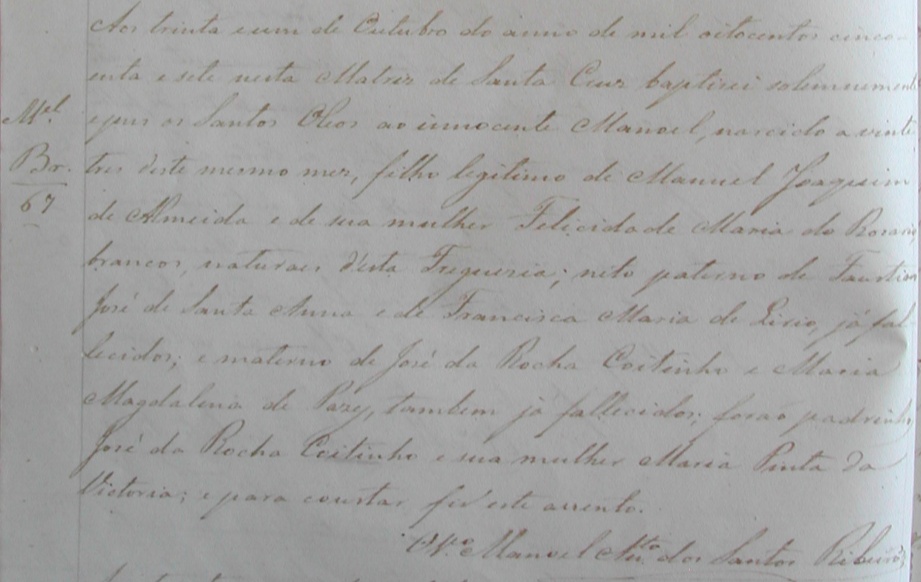 Aos trinta e um de Outubro do anno de mil oitocentos cinco-
enta e sete nesta Matriz de Santa Cruz baptizei solemnemente
Mel.
e pus os Santos Oleos ao innocente Manoel, nascido a vinte
Br.
tres deste mesmo mez, filho legitimo de Manuel Joaquim
67
de Almeida e de sua mulher Felicidade Maria do Rosario
brancos, naturaes d'esta Freguezia; neto paterno de Faustino
José de Santa Anna e de Francisca Maria de Lirio, já fal-
lecidos; e materno de José da Rocha Coitinho e Maria
Magdalena de Pazzy, tambem já fallecidos; forão padrinhos
José da Rocha Coitinho e sua mulher Maria Pinta da
Victoria; e para constar fiz este assento.
O Vo. Manoel Anto. dos Santos Ribeiro